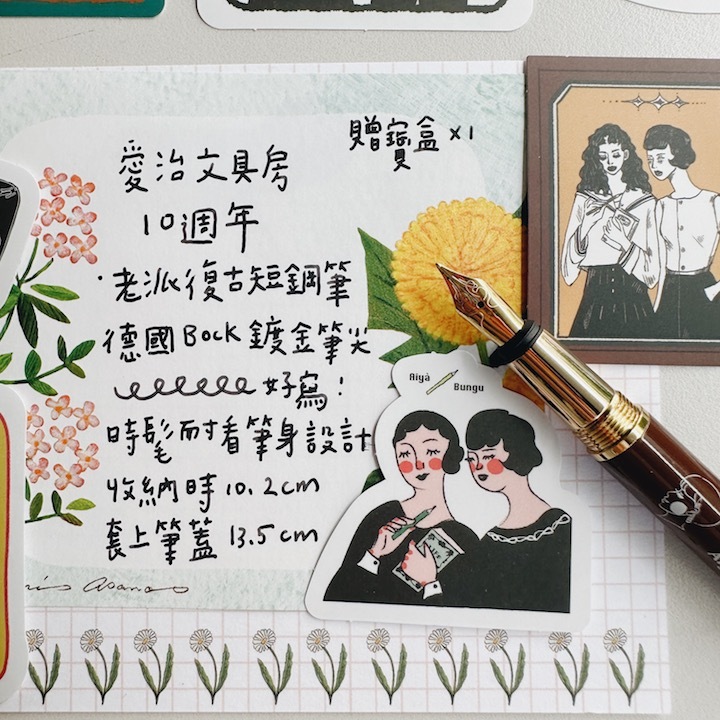 贈寶盒 x1
愛治文具房
10週年
·老派復古短鋼筆
德國Bock鍍金筆尖
好寫!
時髦耐看筆身設計
收納時10.2cm
套上筆蓋 13.5cm
Aiyá Bungu